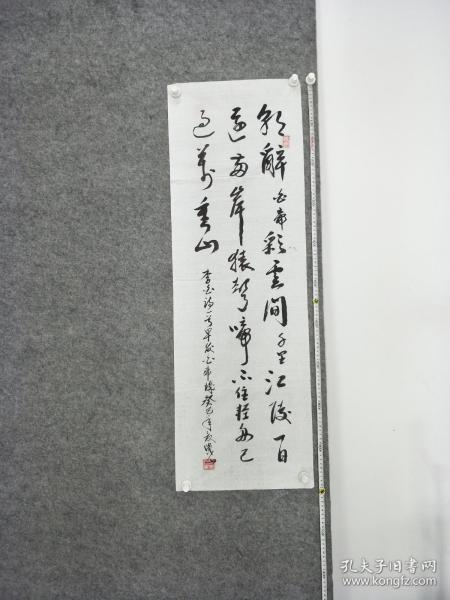 朝辭白帝彩雲間千里江陵一日
還兩岸猿聲啼不住輕舟已
過萬重山
李白詩一首早發白帝城癸巳年夏
孔夫子旧书网
www.kongfz.com